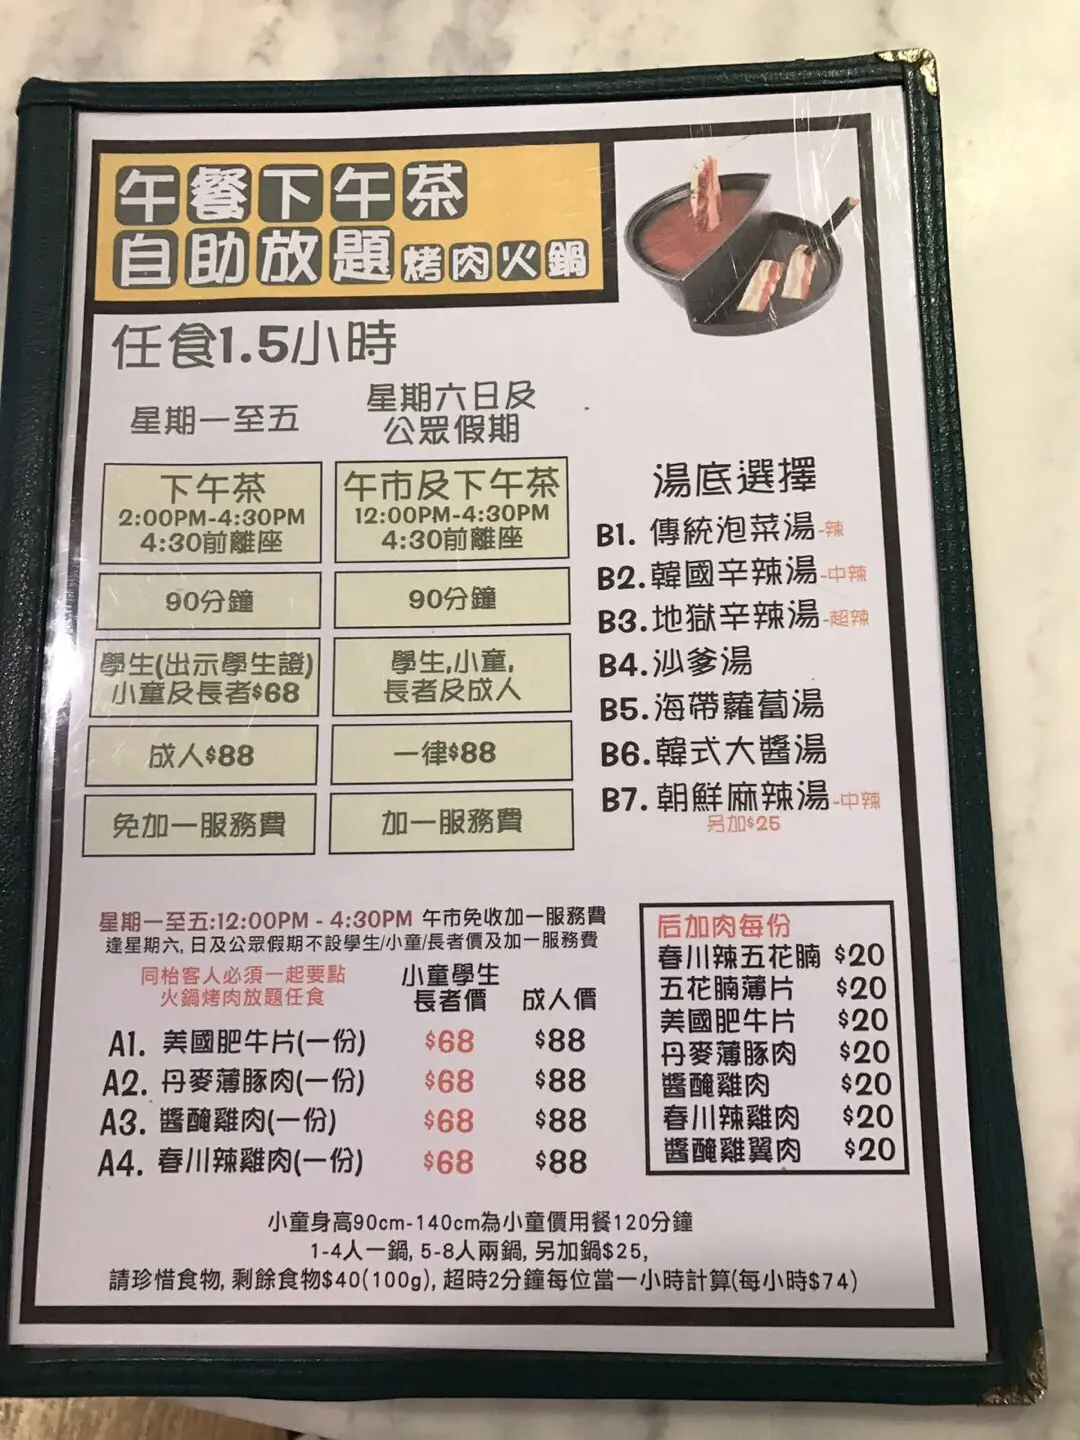 午餐下午茶
自助放題烤肉火鍋
任食1.5小時
星期一至五
星期六日及
公眾假期
下午茶
2:00PM-4:30PM
4:30前離座
午市及下午茶
12:00PM-4:30PM
4:30前離座
90分鐘
90分鐘
學生(出示學生證)
小童及長者$68
學生,小童,
長者及成人
成人$88
一律$88
免加一服務費
加一服務費
湯底選擇
B1. 傳統泡菜湯-辣
B2.韓國辛辣湯-中辣
B3.地獄辛辣湯-超辣
B4.沙爹湯
B5.海帶蘿蔔湯
B6.韓式大醬湯
B7.朝鮮麻辣湯-中辣
另加$25
星期一至五:12:00PM - 4:30PM 午市免收加一服務費
達星期六, 日及公眾假期不設學生/小童/長者價及加一服務費
同枱客人必須一起要點
火鍋烤肉放題任食
小童學生
長者價
成人價
A1. 美國肥牛片(一份) $68 $88
A2. 丹麥薄豚肉(一份) $68 $88
A3. 醬醃雞肉(一份) $68 $88
A4. 春川辣雞肉(一份) $68 $88
后加肉每份
春川辣五花腩 $20
五花腩薄片 $20
美國肥牛片 $20
丹麥薄豚肉 $20
醬醃雞肉 $20
春川辣雞肉 $20
醬醃雞翼肉 $20
小童身高90cm-140cm為小童價用餐120分鐘
1-4人一鍋, 5-8人兩鍋, 另加鍋$25,
請珍惜食物, 剩餘食物$40(100g), 超時2分鐘每位當一小時計算(每小時$74)